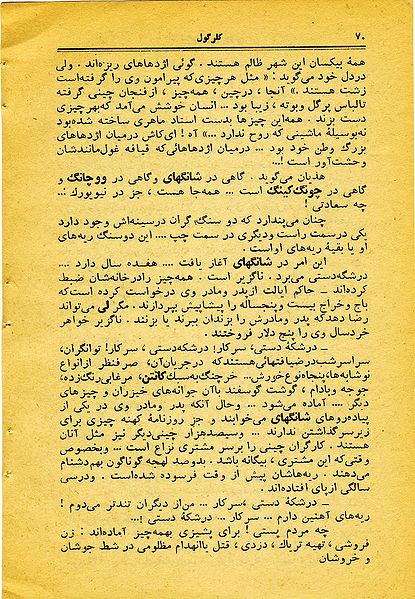 ۷۰
کلرگول
همهٔ بیکسان این شهر ظالم هستند . گوئی اژدهاهای ریزه‌اند . ولی
دردل خود می‌گوید : « مثل هرچیزی‌که پیرامون وی را گرفته‌است
زشت هستند .» آنجا ، درچین ، همه‌چیز ، ازفنجان چینی گرفته
تالباس پرگل وبوته ، زیبا بود ... انسان خوشش می‌آمد که‌بهرچیزی
دست بزند . همه‌این چیزها بدست استاد ماهری ساخته شده‌بود
نه‌بوسیلهٔ ماشینی که روح ندارد ...» آه ! ای‌کاش درمیان اژدهاهای
بزرگ وطن خود بود ... درمیان اژدهاهائی‌که قیافه غول‌مانندشان
وحشت‌آور است !...
هذیان می‌گوید . گاهی در شانگهای وگاهی در ووچانگ و
گاهی در چونگ‌کینگ است ... همه‌جا هست ، جز در نیویورک ...
چه سعادتی !
چنان می‌پندارد که دو سنگ گران درسینه‌اش وجود دارد
یکی درسمت راست ودیگری در سمت چپ .... این دوسنگ ریه‌های
او یا بقیهٔ ریه‌های اواست .
این امر در شانگهای آغاز یافت .... هفده سال دارد ....
درشگه‌دستی می‌برد . ناگزیر است . همه‌چیز رادرخانه‌شان ضبط
کرده‌اند – حاکم ایالت ازپدر ومادر وی درخواست کرده است‌که
باج وخراج بیست وپنجساله را پیشاپیش بپردازند . مگر لی می‌تواند
رضا دهدکه پدر ومادرش را بزندان ببرند یا بزنند . ناگزیر خواهر
خردسال وی را پنج دلار فروختند .
– درشکهٔ دستی ، سرکار! درشکه‌دستی ، سرکار! توانگران،
سراسرشب‌درضیافتهائی‌هستندکه درجریان‌آن، صرفنظر ازانواع
نوشابه‌ها،پنجاه‌نوع‌خورش... خرچنگ‌به‌سبك‌کانتن، مرغابی‌رنگ‌زده،
جوجه وبادام ، گوشت گوسفند باآن جوانه‌های خیزران و چیزهای
دیگر .... آماده می‌شود ... وحال آنکه پدر ومادر وی در یکی از
پیاده‌روهای شانگهای می‌خوابند و جز روزنامهٔ کهنه چیزی برای
زیرسرگذاشتن ندارند ... وسیصدهزار چینی‌دیگر نیز مثل آنان
هستند . کارگران چینی را برسر مشتری نزاع است ... وبخصوص
وقتی‌که این مشتری ، بیگانه باشد . بدوصد لهجه گوناگون بهم‌دشنام
می‌دهند . ریه‌هاشان پیش از وقت فرسوده شده‌است . ودرسی
سالگی ازپای افتاده‌اند .
– درشکهٔ دستی ، سرکار ... من‌از دیگران تندتر می‌دوم !
ریه‌های آهنین دارم ... سرکار ... درشکهٔ دستی !...
چه مردم پستی ! برای پشیزی بهمه‌چیز آماده‌اند : زن
فروشی ، تهیه تریاك ، دزدی ، قتل یاانهدام مظلومی در شط جوشان
و خروشان